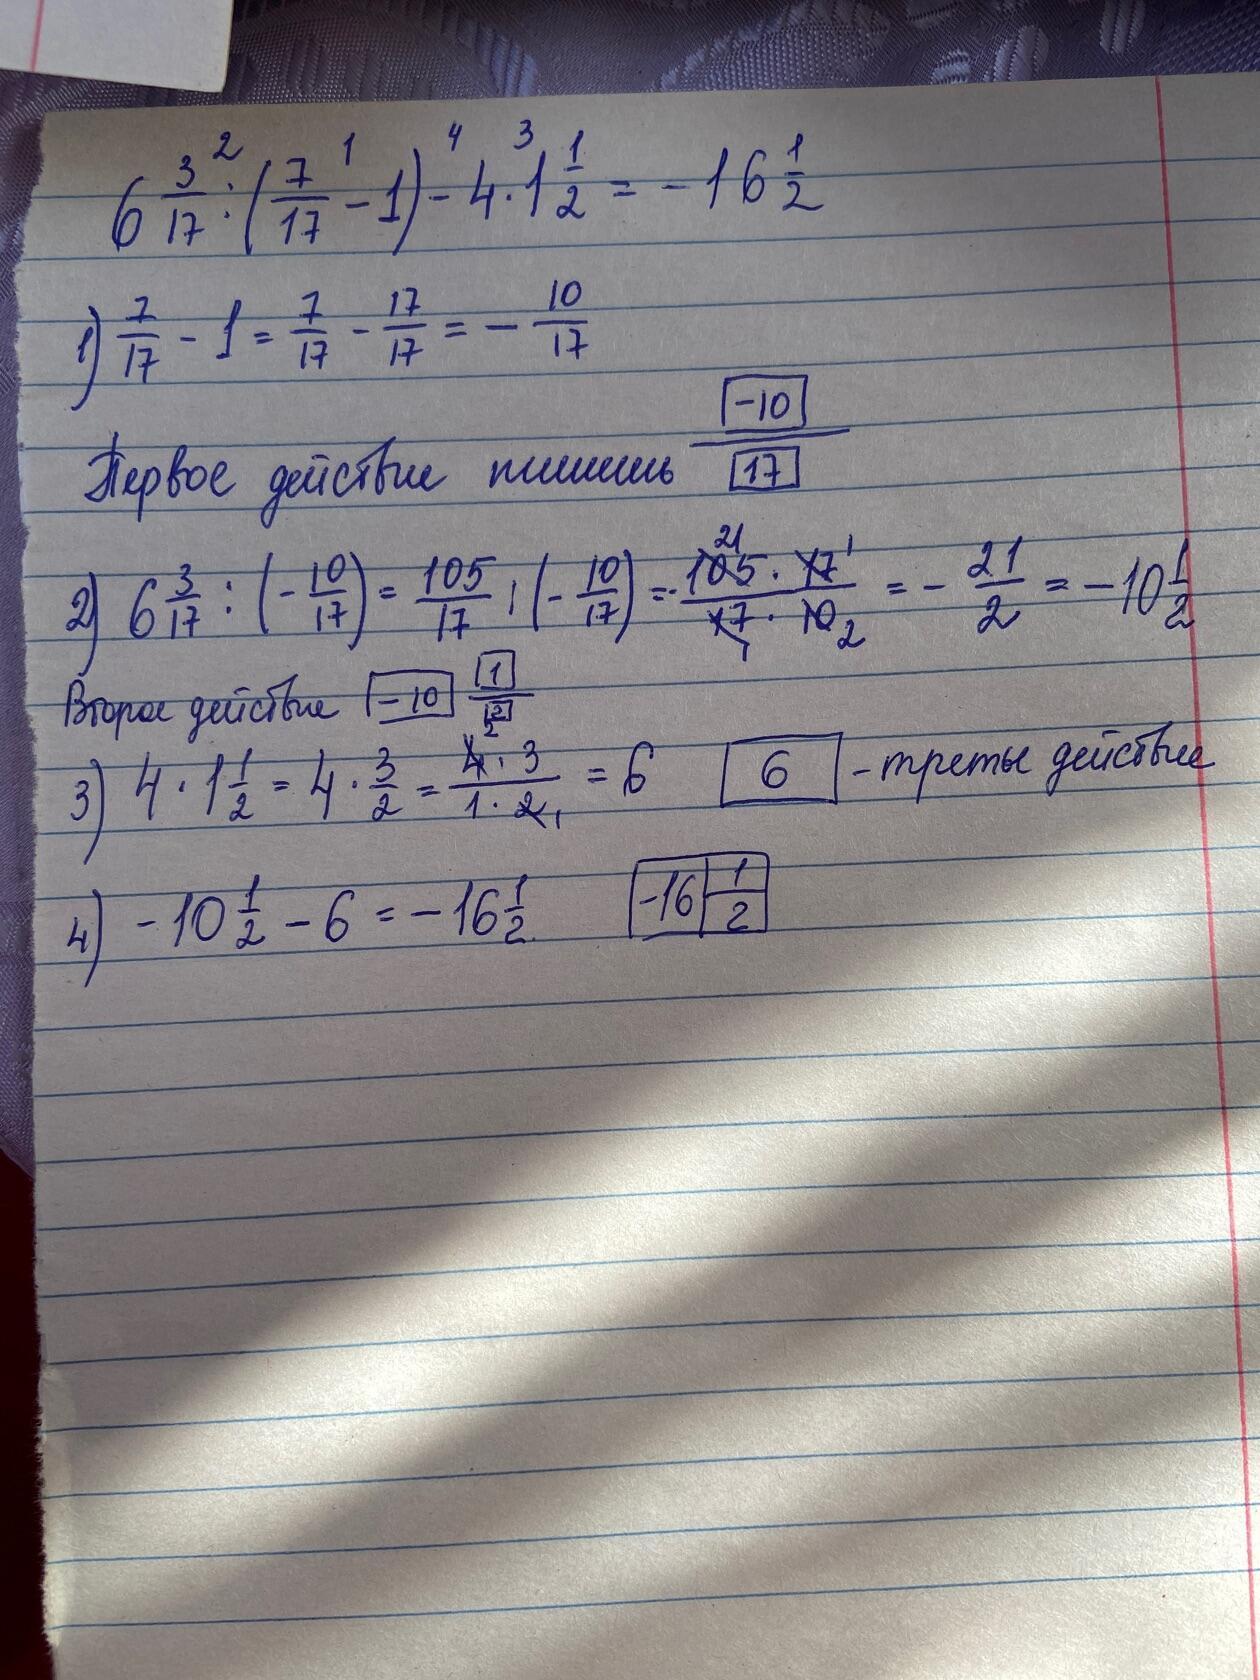 6 3/17 : (7/17 - 1) - 4 · 1 1/2 = -16 1/2
1) 7/17 - 1 = 7/17 - 17/17 = - 10/17
Первое действие пишешь -10/17
2) 6 3/17 : (- 10/17) = 105/17 : (- 10/17) = - 105 · 17/17 · 10 = - 21/2 = -10 1/2
Второе действие -10 1/2
3) 4 · 1 1/2 = 4 · 3/2 = 4 · 3/1 · 2 = 6 6 - треты действие
4) -10 1/2 - 6 = -16 1/2 -16 1/2